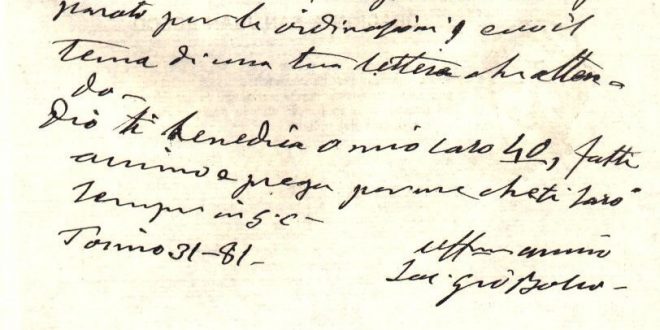 parato per le ordinazioni, ecco il
tema di una tua lettera che atten=
do -
Dio ti benedica o mio caro 40, fatti
animo e prega per me che ti sarò
sempre in G. C. -
Torino 31 - 81 -
Aff.mo amico
Sac. Gio Bosco -